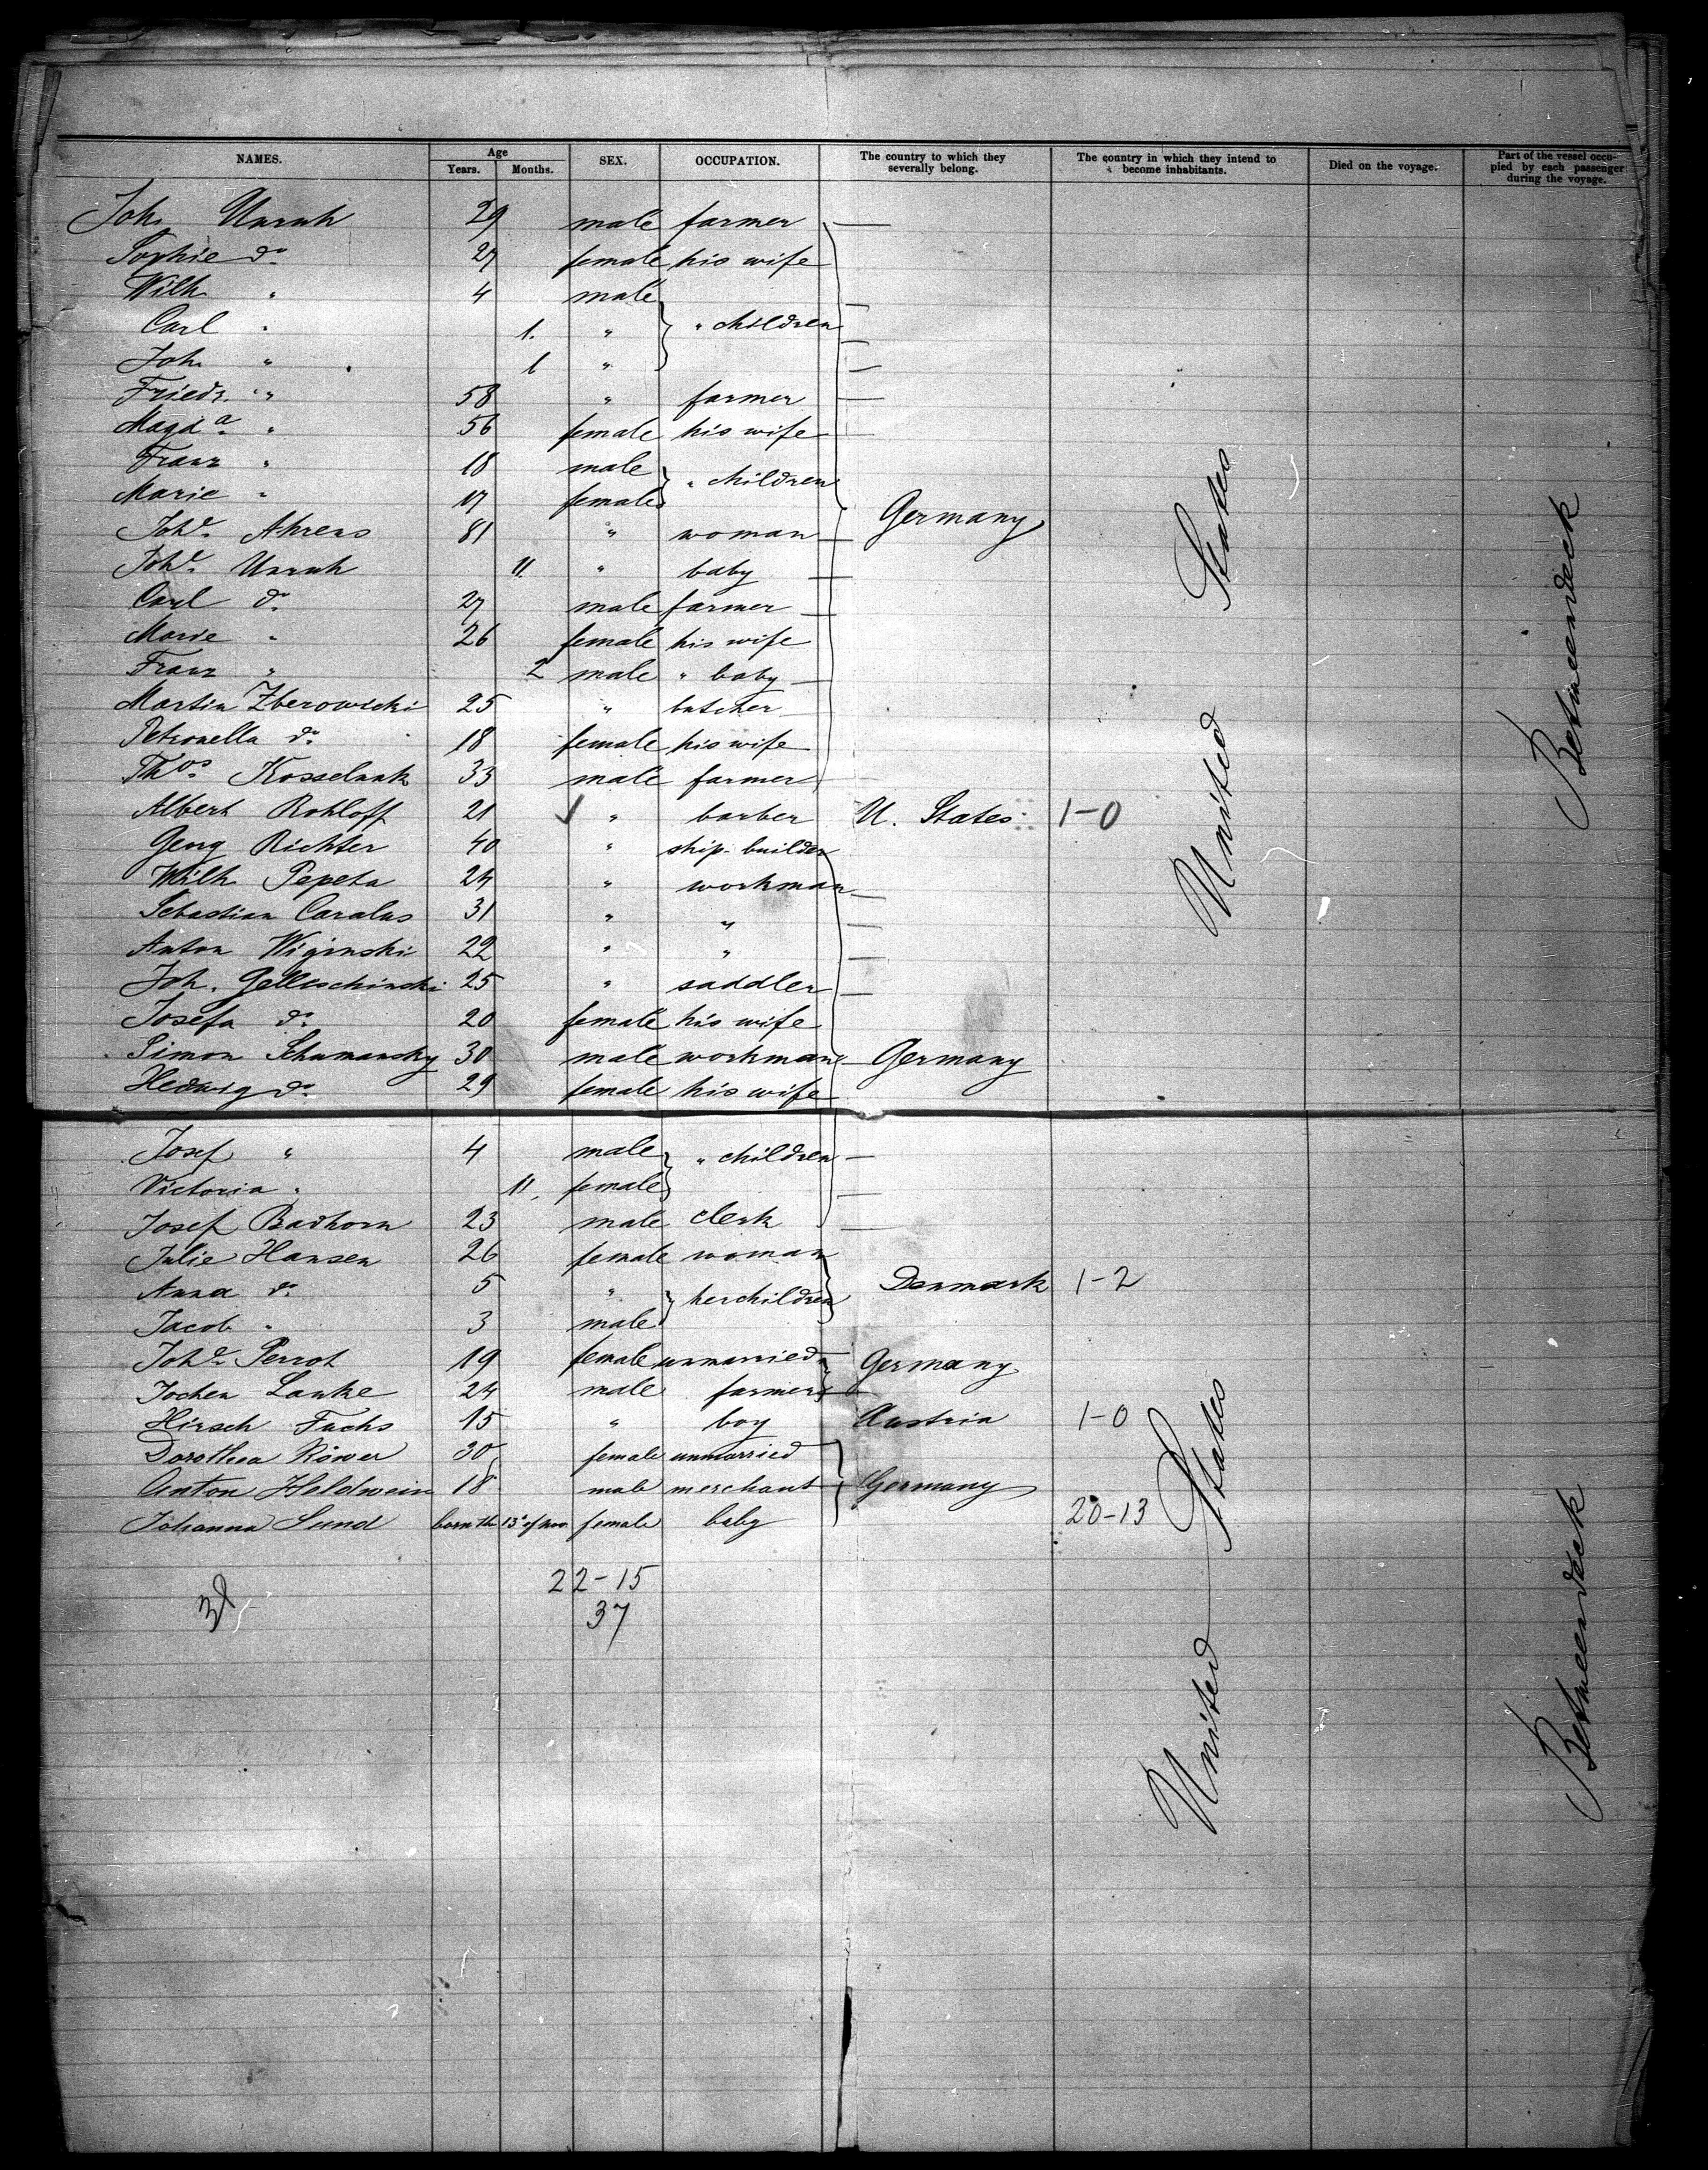 NAMES. Age Years. Months. SEX. OCCUPATION. The country to which they severally belong. The country in which they intend to become inhabitants. Died on the voyage. Part of the vessel occupied by each passenger during the voyage.
Joh. Unruh 29 male farmer
Sophie do. 27 female his wife
Wilh. " 4 male
Carl " 1. " " children
Joh. " 1 "
Friedr. " 58 " farmer
Magda. " 56 female his wife
Franz " 18 male
Marie " 17 female " children
Johe. Ahrens 81 " woman Germany
Johe. Unruh 11. " baby
Carl do. 27 male farmer
Marie " 26 female his wife
Franz " 2 male " baby
Martin Zberowicki 25 " butcher
Petronella do. 18 female his wife
Thos. Kosselnak 33 male farmer
Albert Rohloff 21 " barber U. States 1-0
Georg Richter 40 " ship-builder
Wilh. Pepeta 24 " workman
Sebastian Caralus 31 " "
Anton Wiginski 22 " "
Joh. Gelleschinski 25 " saddler
Josefa do. 20 female his wife
Simon Schumansky 30 male workman Germany
Hedwig do. 29 female his wife
United States
Betweendeck
Josef " 4 male " children
Victoria " 11. female
Josef Badhorn 23 male clerk
Julie Hansen 26 female woman
Anna do. 5 " her children Denmark 1-2
Jacob " 3 male
Johe. Perrot 19 female unmarried Germany
Jochen Lanke 24 male farmer
Hirsch Fuchs 15 " boy Austria 1-0
Dorothea Röwer 30 female unmarried
Anton Heldwein 18 male merchant Germany
Johanna Lund born the 13" of nov. female baby 20-13
22-15
37
United States
Betweendeck